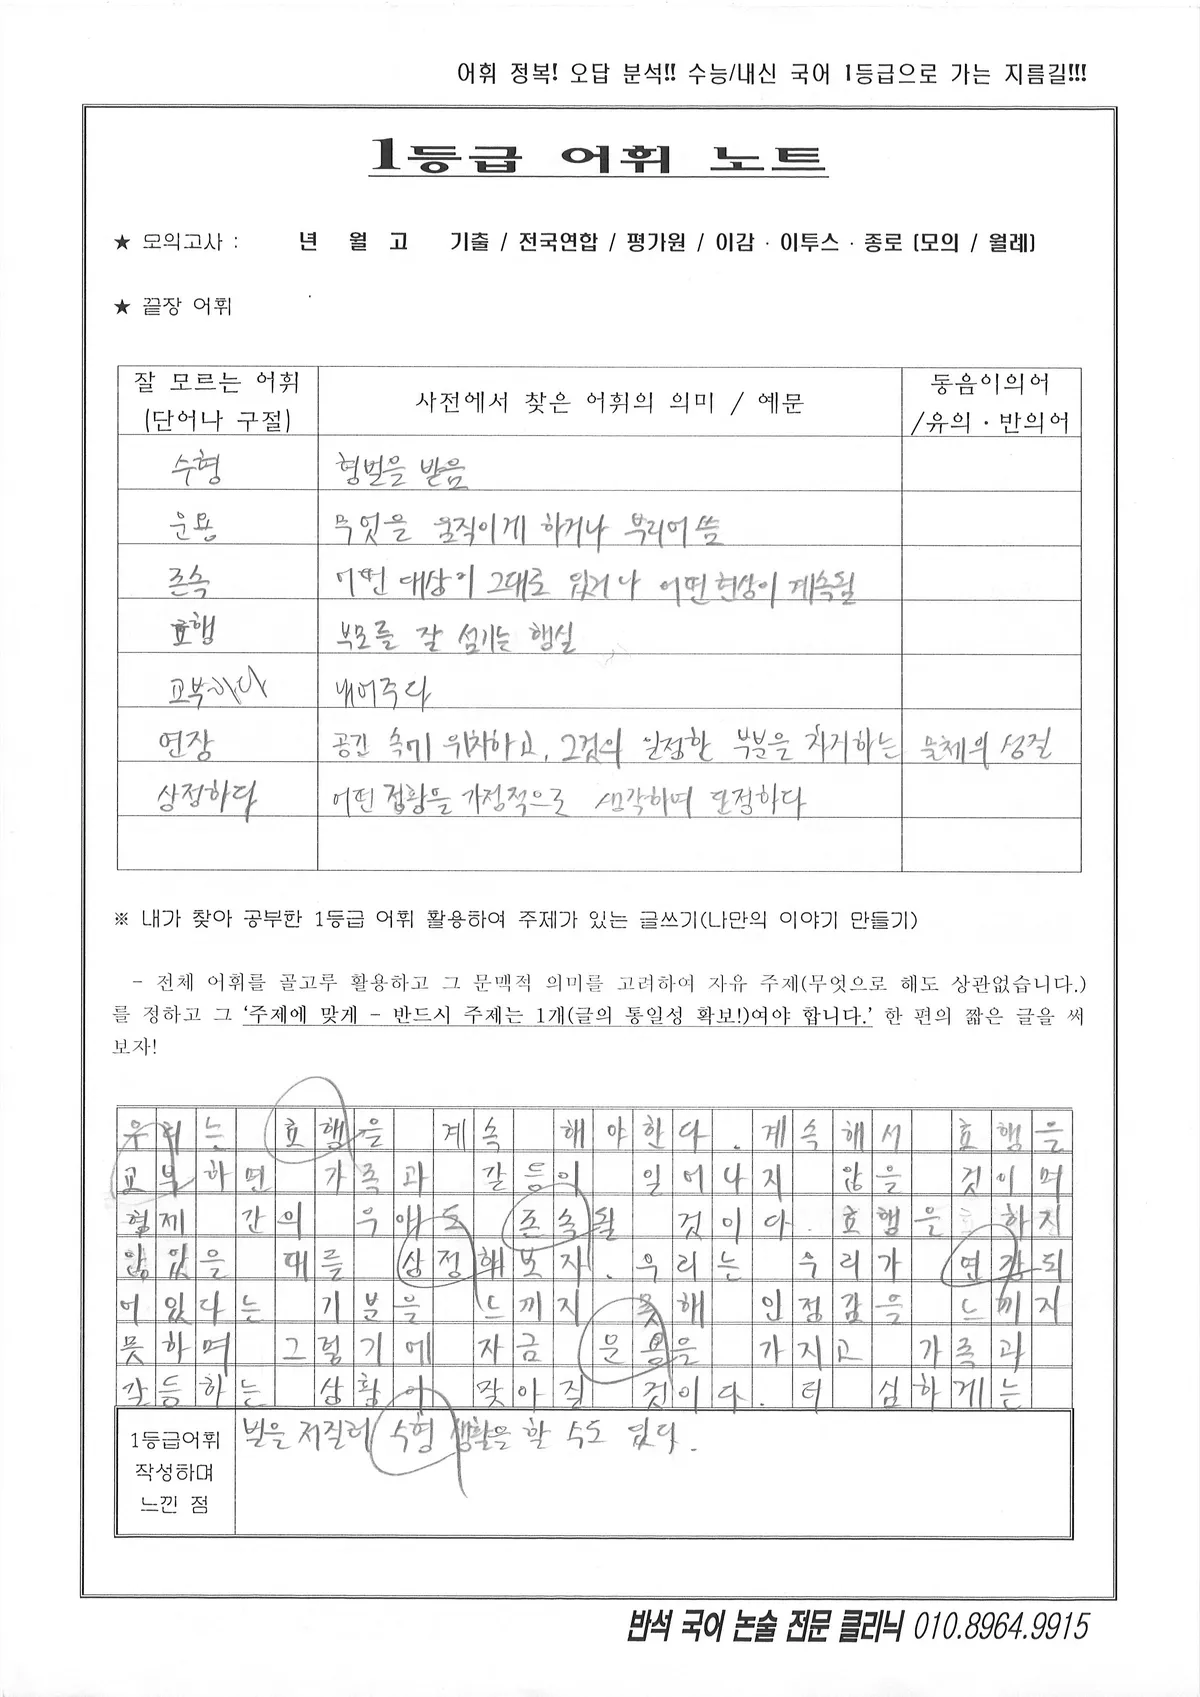 어휘 정복! 오답 분석!! 수능/내신 국어 1등급으로 가는 지름길!!!
1등급 어휘 노트
★ 모의고사 : 년 월 고 기출 / 전국연합 / 평가원 / 이감 · 이투스 · 종로 (모의 / 월례)
★ 끝장 어휘
잘 모르는 어휘
(단어나 구절)
사전에서 찾은 어휘의 의미 / 예문
동음이의어
/유의 · 반의어
수형 형벌을 받음
운용 무엇을 움직이게 하거나 부리어 씀
존속 어떤 대상이 그대로 있거나 어떤 현상이 계속됨
효행 부모를 잘 섬기는 행실
교부하다 내어주다
연장 공간 속에 위치하고, 그것의 일정한 부분을 차지하는 물체의 성질
상정하다 어떤 정황을 가정적으로 생각하여 단정하다
※ 내가 찾아 공부한 1등급 어휘 활용하여 주제가 있는 글쓰기(나만의 이야기 만들기)
- 전체 어휘를 골고루 활용하고 그 문맥적 의미를 고려하여 자유 주제(무엇으로 해도 상관없습니다.)
를 정하고 그 '주제에 맞게 - 반드시 주제는 1개(글의 통일성 확보!)여야 합니다.' 한 편의 짧은 글을 써
보자!
우리는 효행을 계속 해야한다. 계속해서 효행을
교부하면 가족과 갈등이 일어나지 않을 것이며
형제 간의 우애도 존속될 것이다. 효행을 하지
않았을 때를 상정해보자. 우리는 우리가 연장되
어있다는 기분을 느끼지 못해 안정감을 느끼지
못하며 그렇기에 자금 운용을 가지고 가족과
갈등하는 상황이 잦아질 것이다. 더 심하게는
벌을 저질러 수형 생활을 할 수도 있다.
1등급어휘
작성하며
느낀 점
반석 국어 논술 전문 클리닉 010.8964.9915